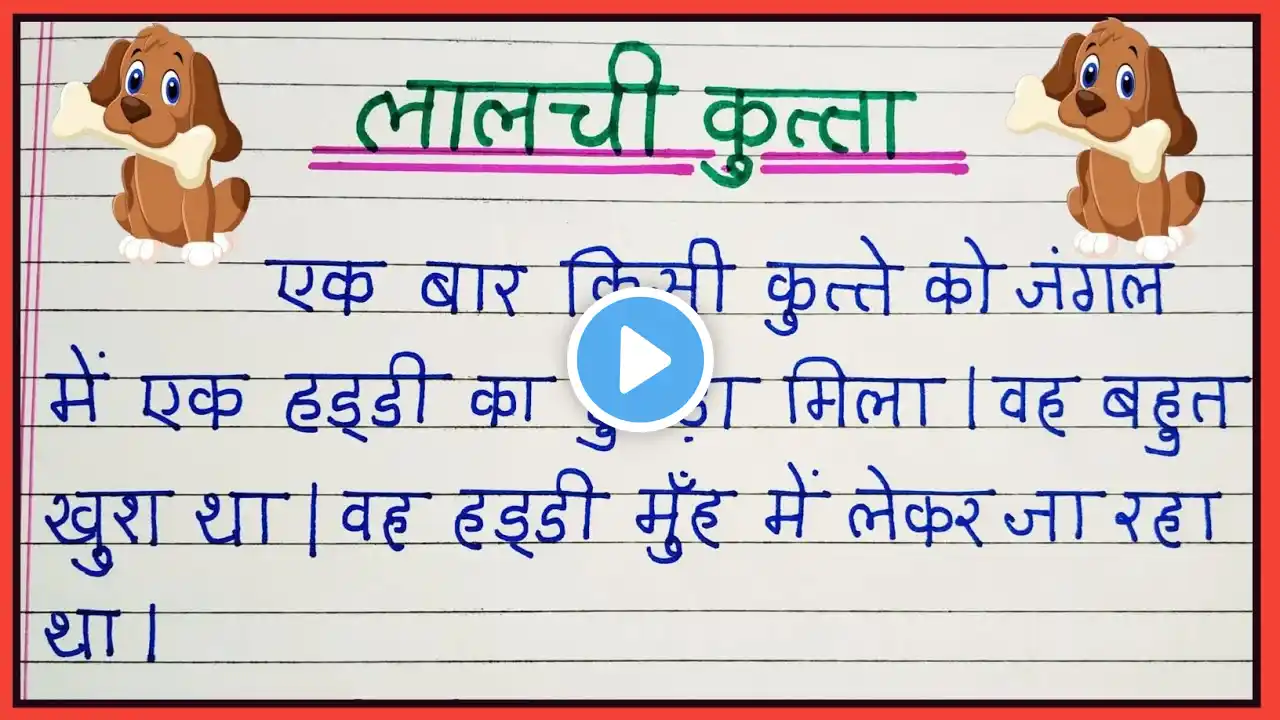 लालची कुत्ता
एक बार किसी कुत्ते को जंगल
में एक हड्डी का मिला। वह बहुत
खुश था। वह हड्डी मुँह में लेकर जा रहा
था।